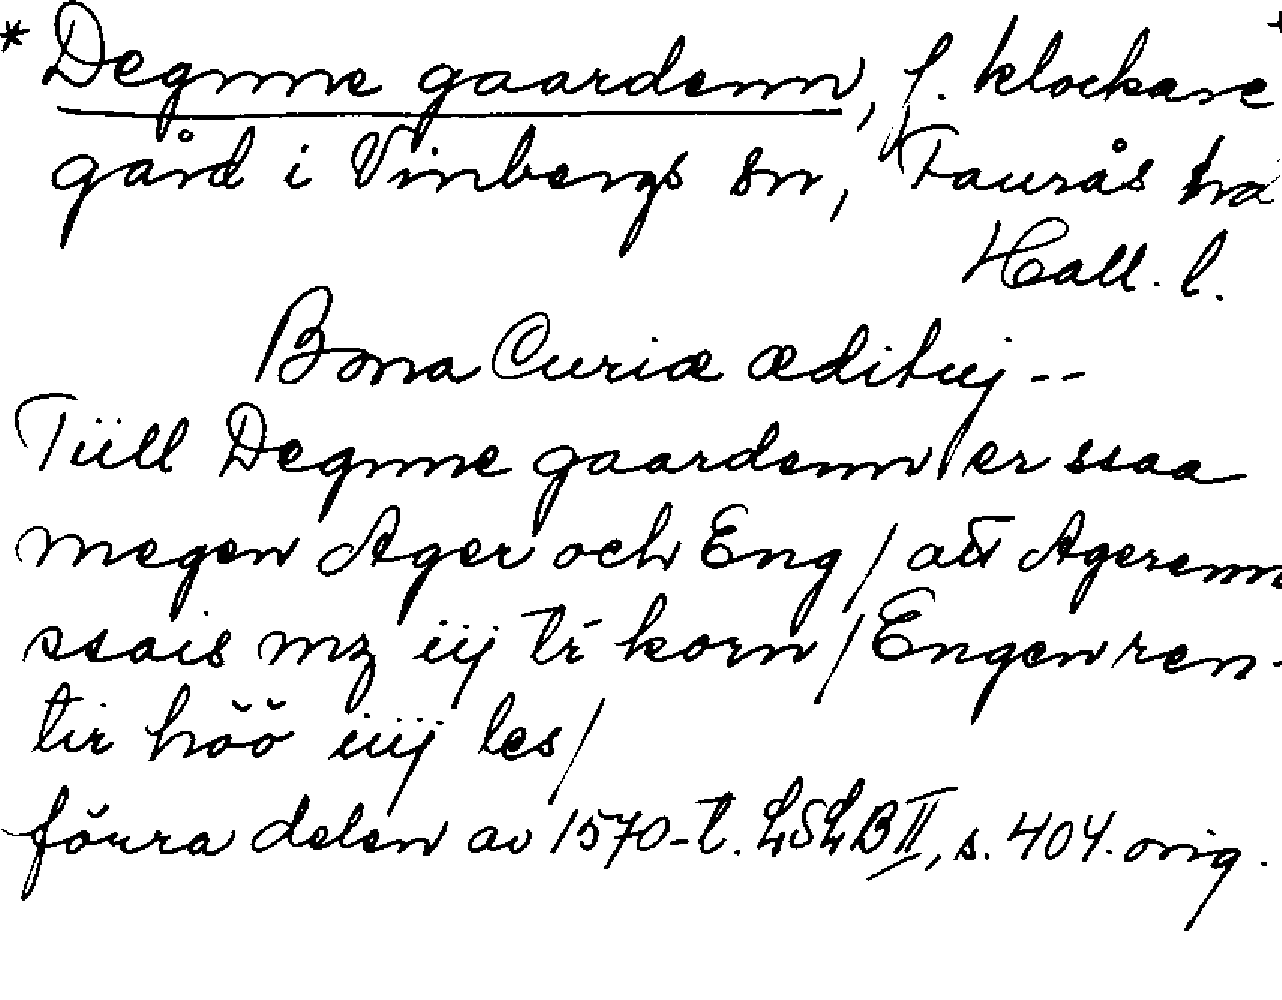 * Degnne gaardenn, f. klockare
gård i Vinbergs sn, Faurås hd
Hall. l.
Bona Curiæ æditüj --
Tüll Degnne gaardenn er ssaa
megen Ager och Eng / att Agerenn
ssais mz iij tr korn / Engen ren-
tir höö iiij les /
förra delen av 1570-t. LSLB II, s. 404. orig.